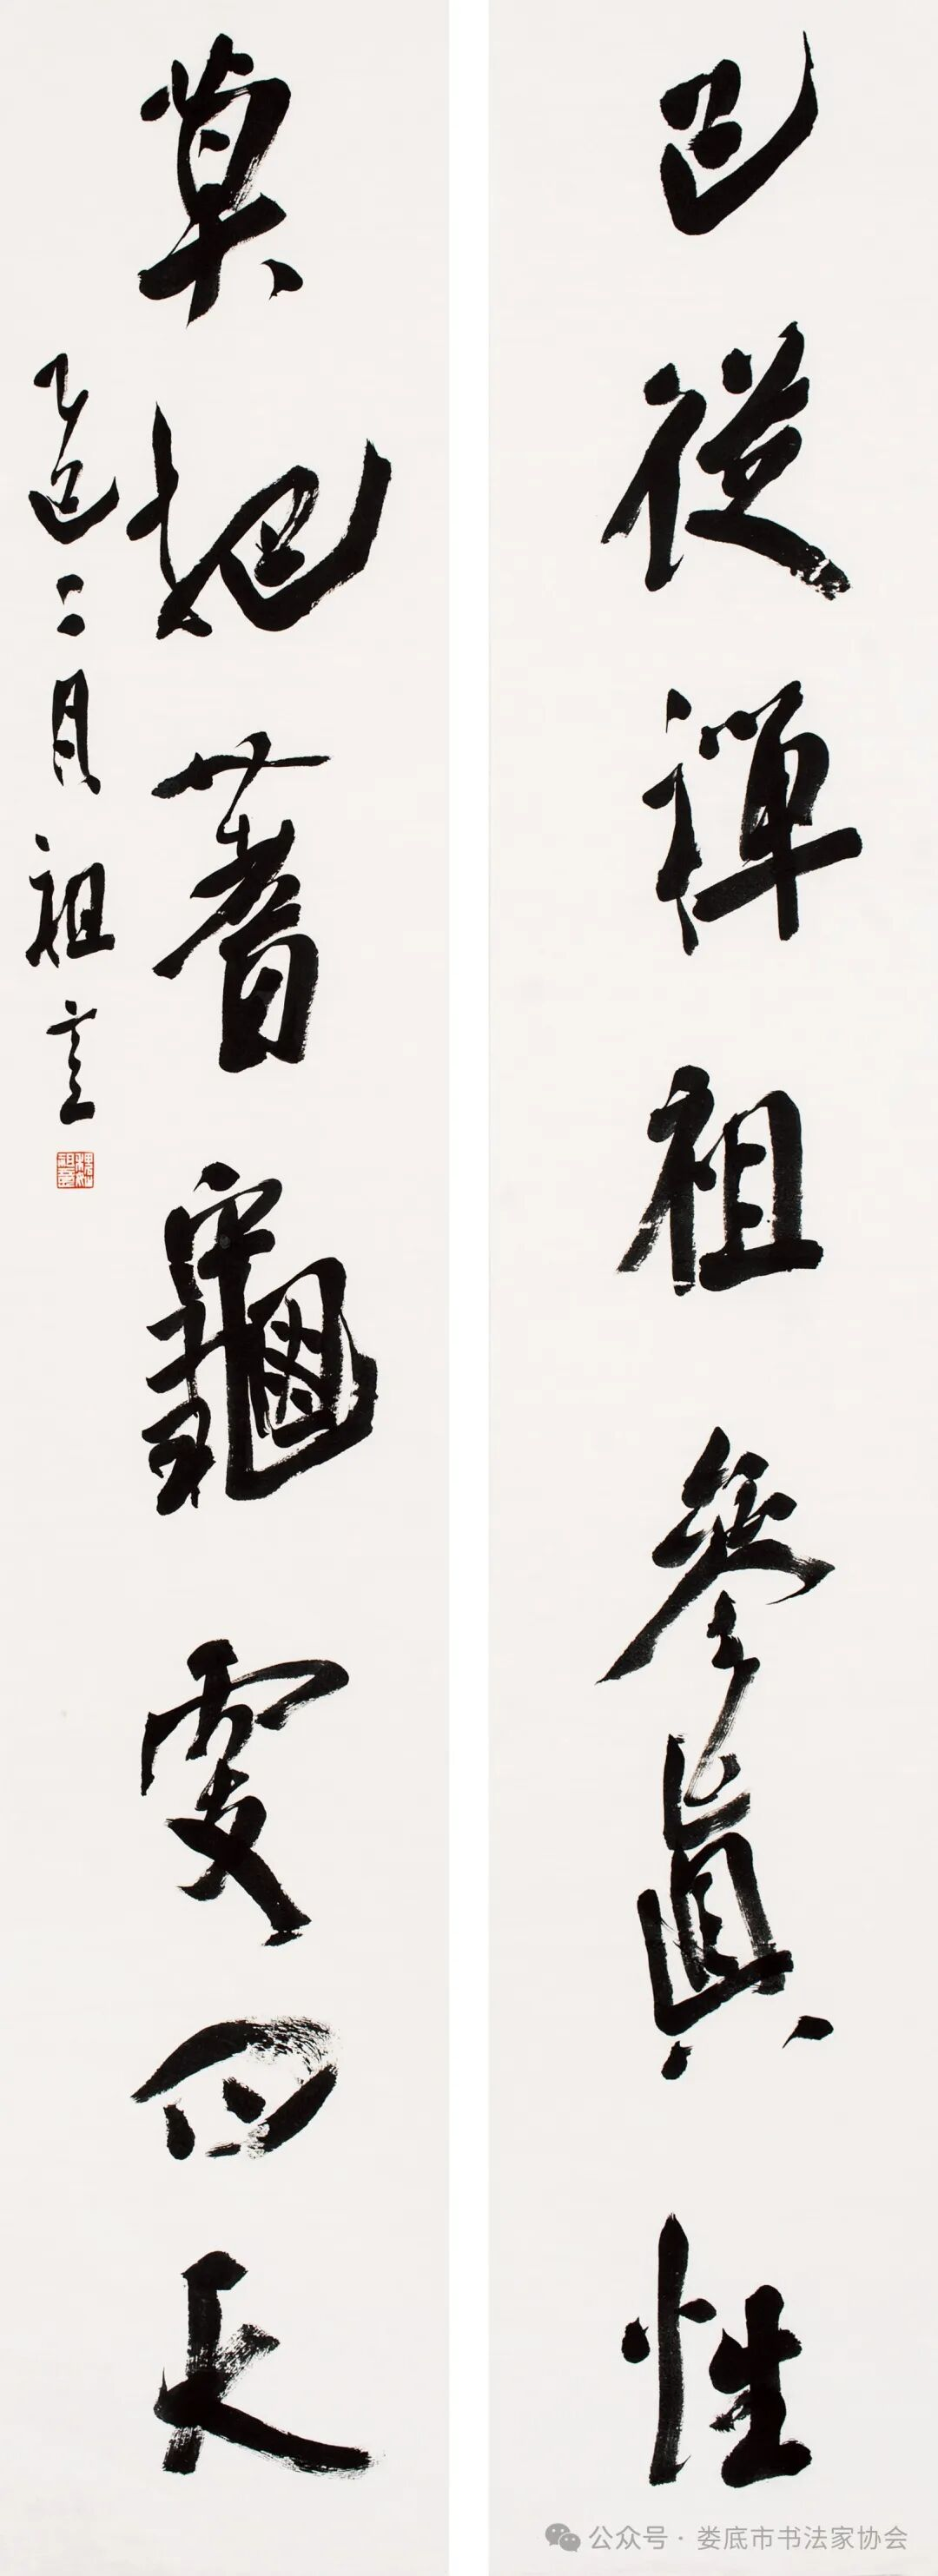 已從禪祖參真性
莫把蓍龜定四天
乙巳二月祖言
公众号·娄底市书法家协会